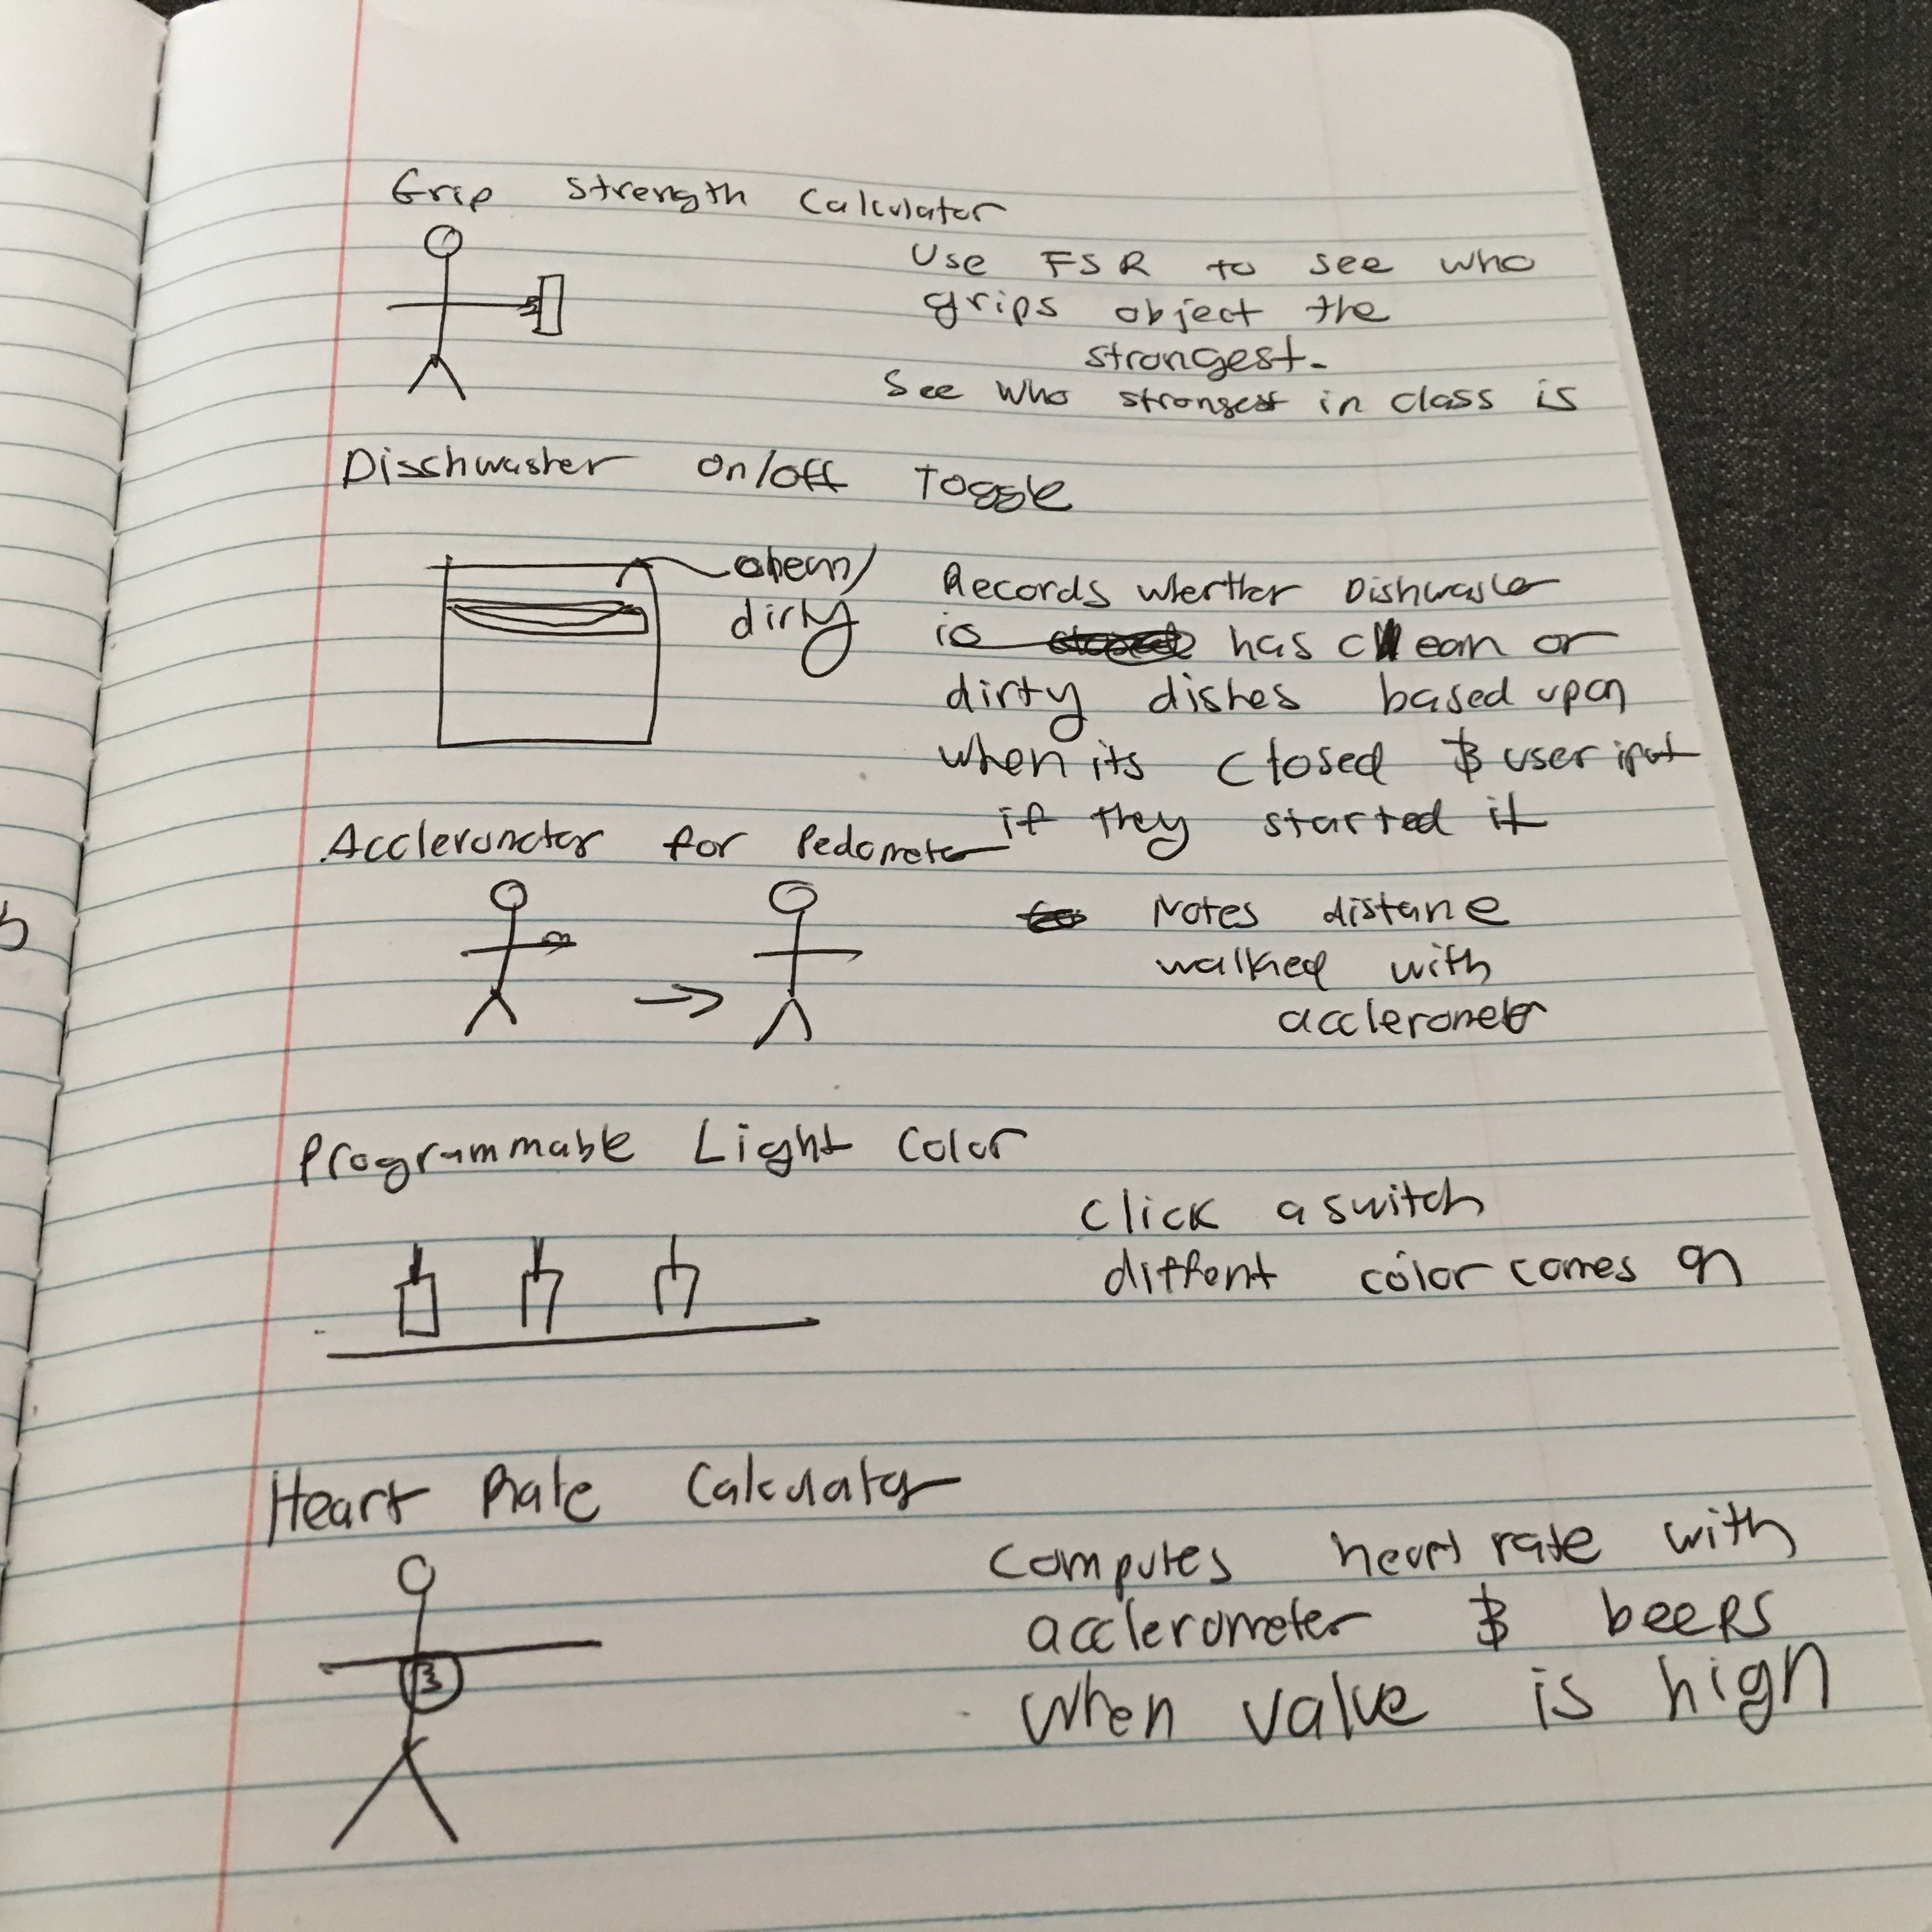 Grip Strength Calculator
Use FSR to see who
grips object the
strongest.
See who strongest in class is
Disschwasher on/off Toggle
clean/
dirty
Records whether Dishwasher
is has clean or
dirty dishes based upon
when its closed & user input
if they started it
Acclerometor for Pedometer
Notes distane
walked with
acclerometer
Programmable Light Color
Click a switch
diffent color comes on
Heart Rate Calculator
Computes heart rate with
acclerometer & beeps
when value is high